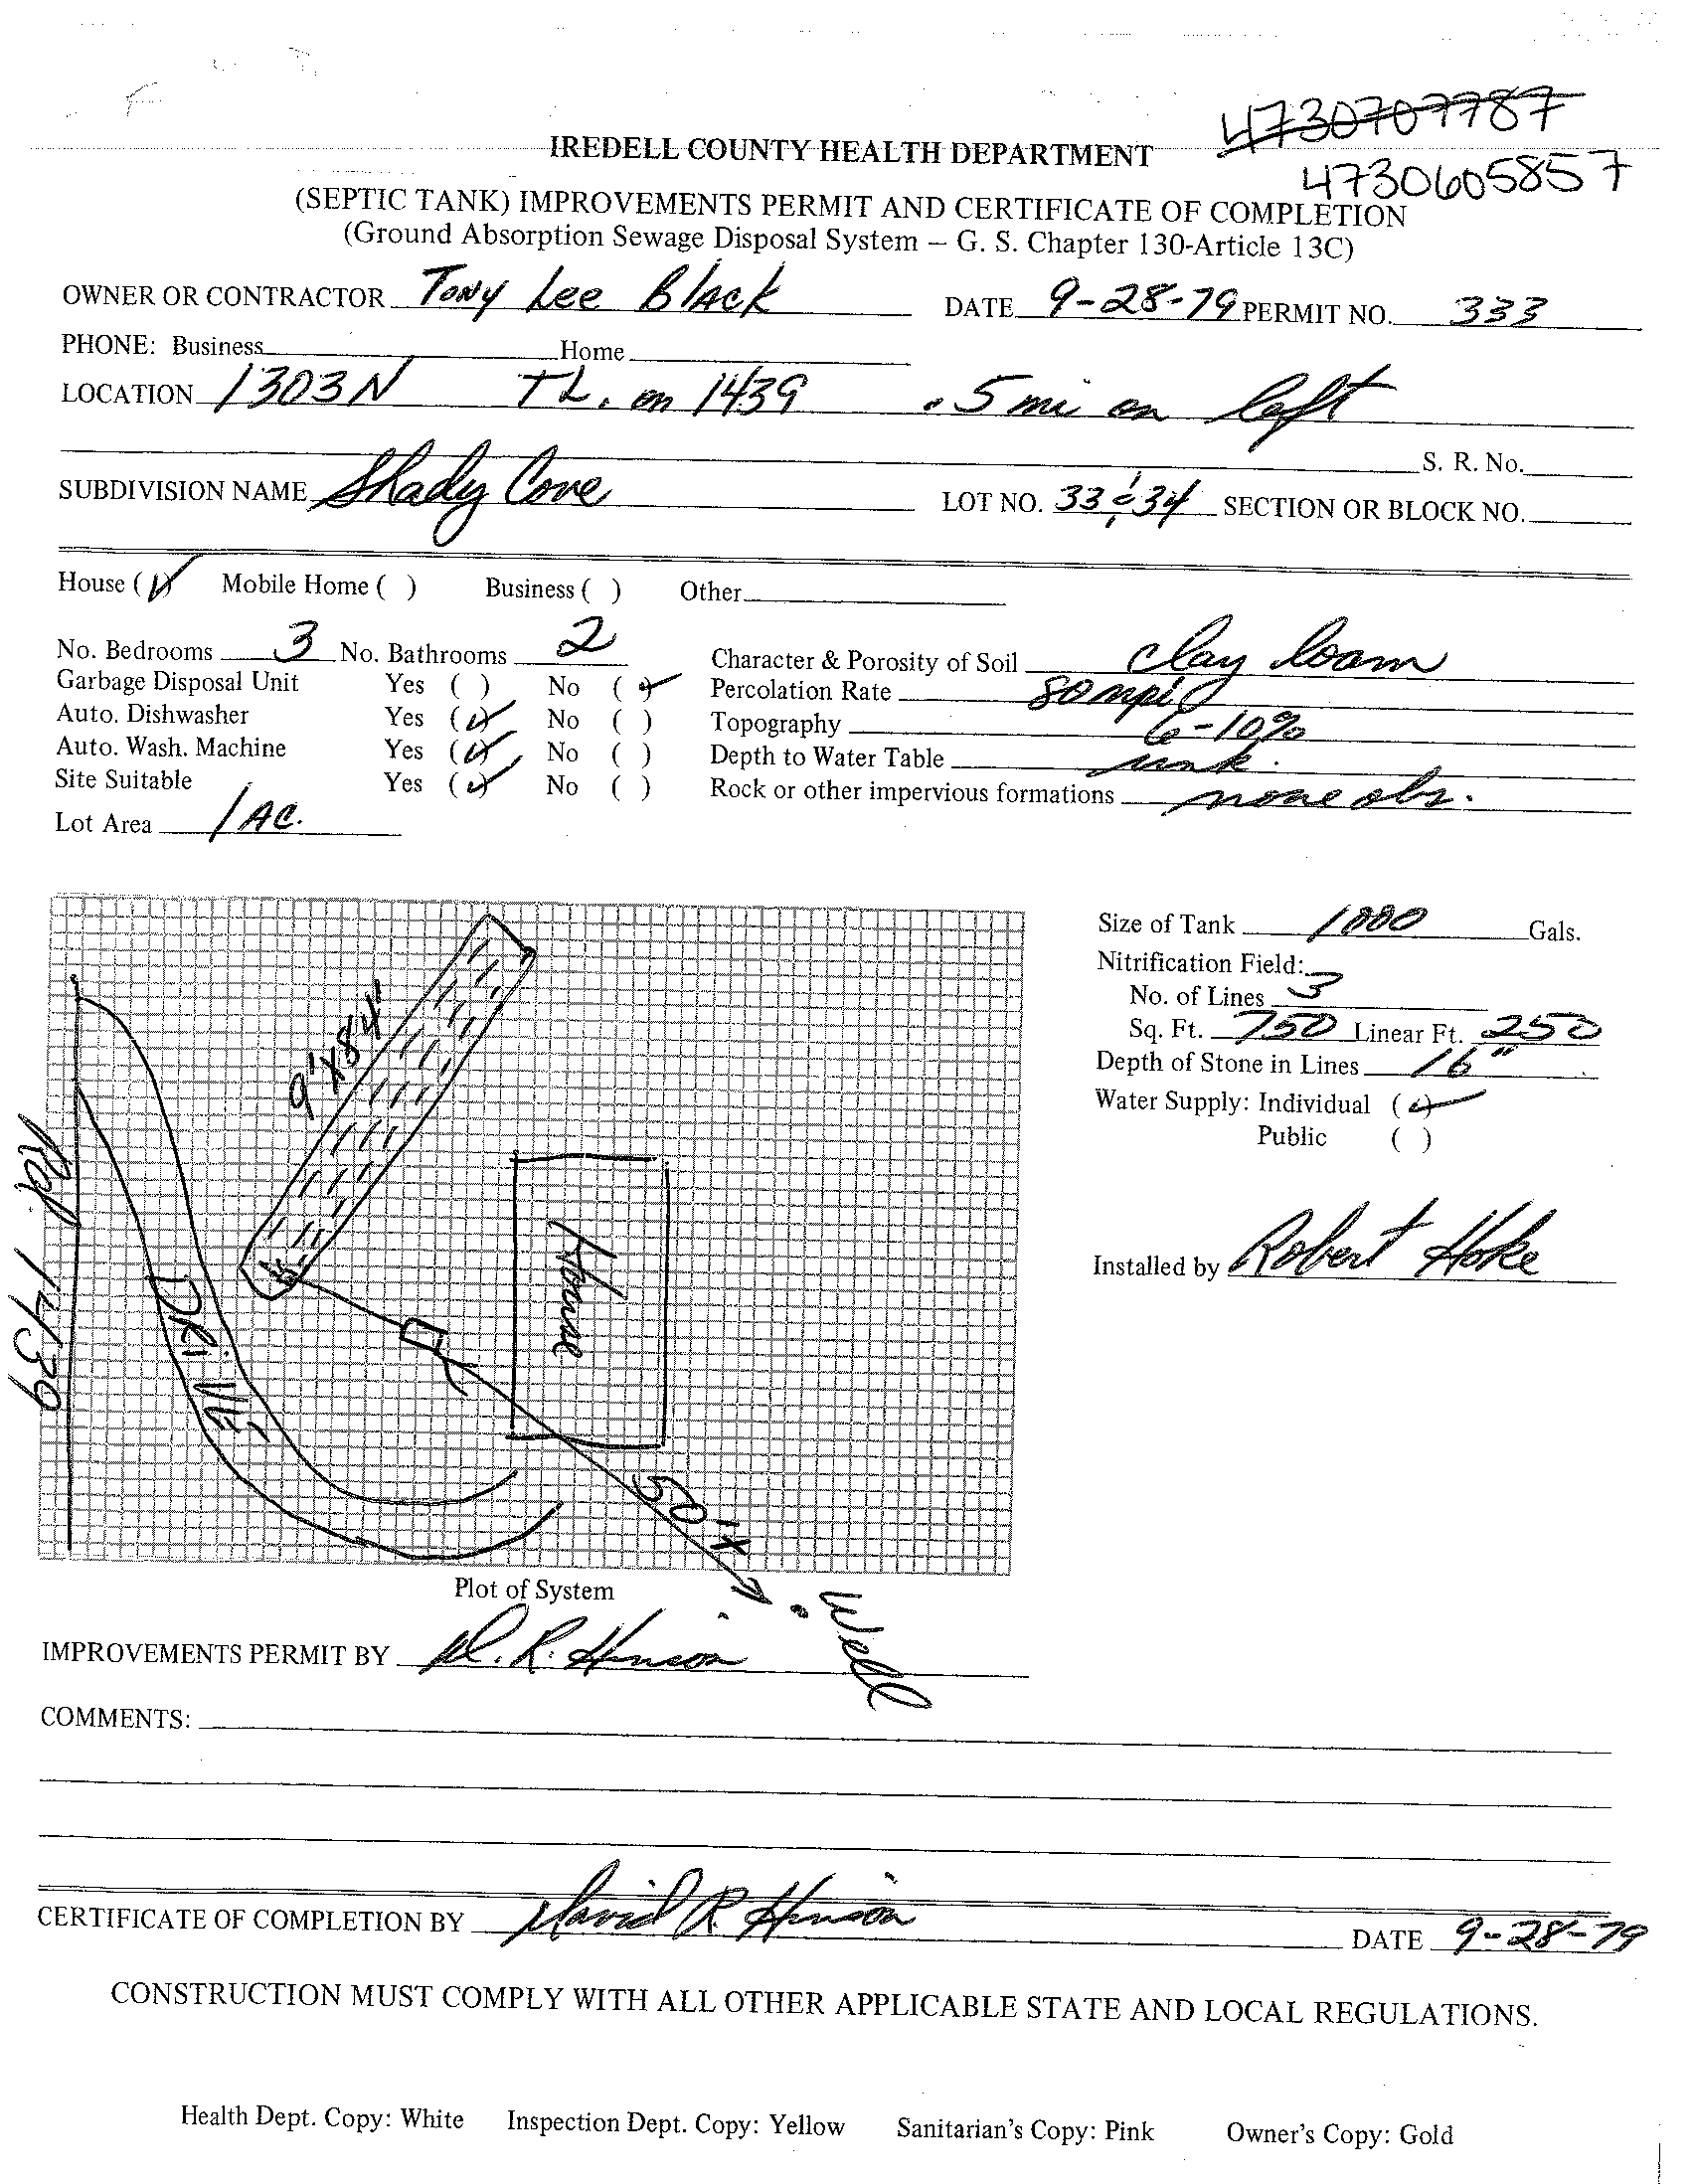 4730707787
IREDELL COUNTY HEALTH DEPARTMENT
4730605857
(SEPTIC TANK) IMPROVEMENTS PERMIT AND CERTIFICATE OF COMPLETION
(Ground Absorption Sewage Disposal System – G. S. Chapter 130-Article 13C)
OWNER OR CONTRACTOR Tony Lee Black DATE 9-28-79 PERMIT NO. 333
PHONE: Business Home
LOCATION 1303 N TL. on 1439 .5 mi on left
S. R. No.
SUBDIVISION NAME Shady Cove LOT NO. 33 & 34 SECTION OR BLOCK NO.
House (✓) Mobile Home ( ) Business ( ) Other
No. Bedrooms 3 No. Bathrooms 2 Character & Porosity of Soil clay loam
Garbage Disposal Unit Yes ( ) No (✓) Percolation Rate 80 mpi
Auto. Dishwasher Yes (✓) No ( ) Topography 6-10%
Auto. Wash. Machine Yes (✓) No ( ) Depth to Water Table unk.
Site Suitable Yes (✓) No ( ) Rock or other impervious formations none obs.
Lot Area 1 AC.
Size of Tank 1000 Gals.
Nitrification Field:
No. of Lines 3
Sq. Ft. 750 Linear Ft. 250
Depth of Stone in Lines 16"
Water Supply: Individual (✓)
Public ( )
Installed by Robert Hoke
9'X84'
Rd 1439
DRIVE
House
50'X
Well
Plot of System
IMPROVEMENTS PERMIT BY D. R. Hinson
COMMENTS:
CERTIFICATE OF COMPLETION BY David R. Hinson
DATE 9-28-79
CONSTRUCTION MUST COMPLY WITH ALL OTHER APPLICABLE STATE AND LOCAL REGULATIONS.
Health Dept. Copy: White Inspection Dept. Copy: Yellow Sanitarian's Copy: Pink Owner's Copy: Gold